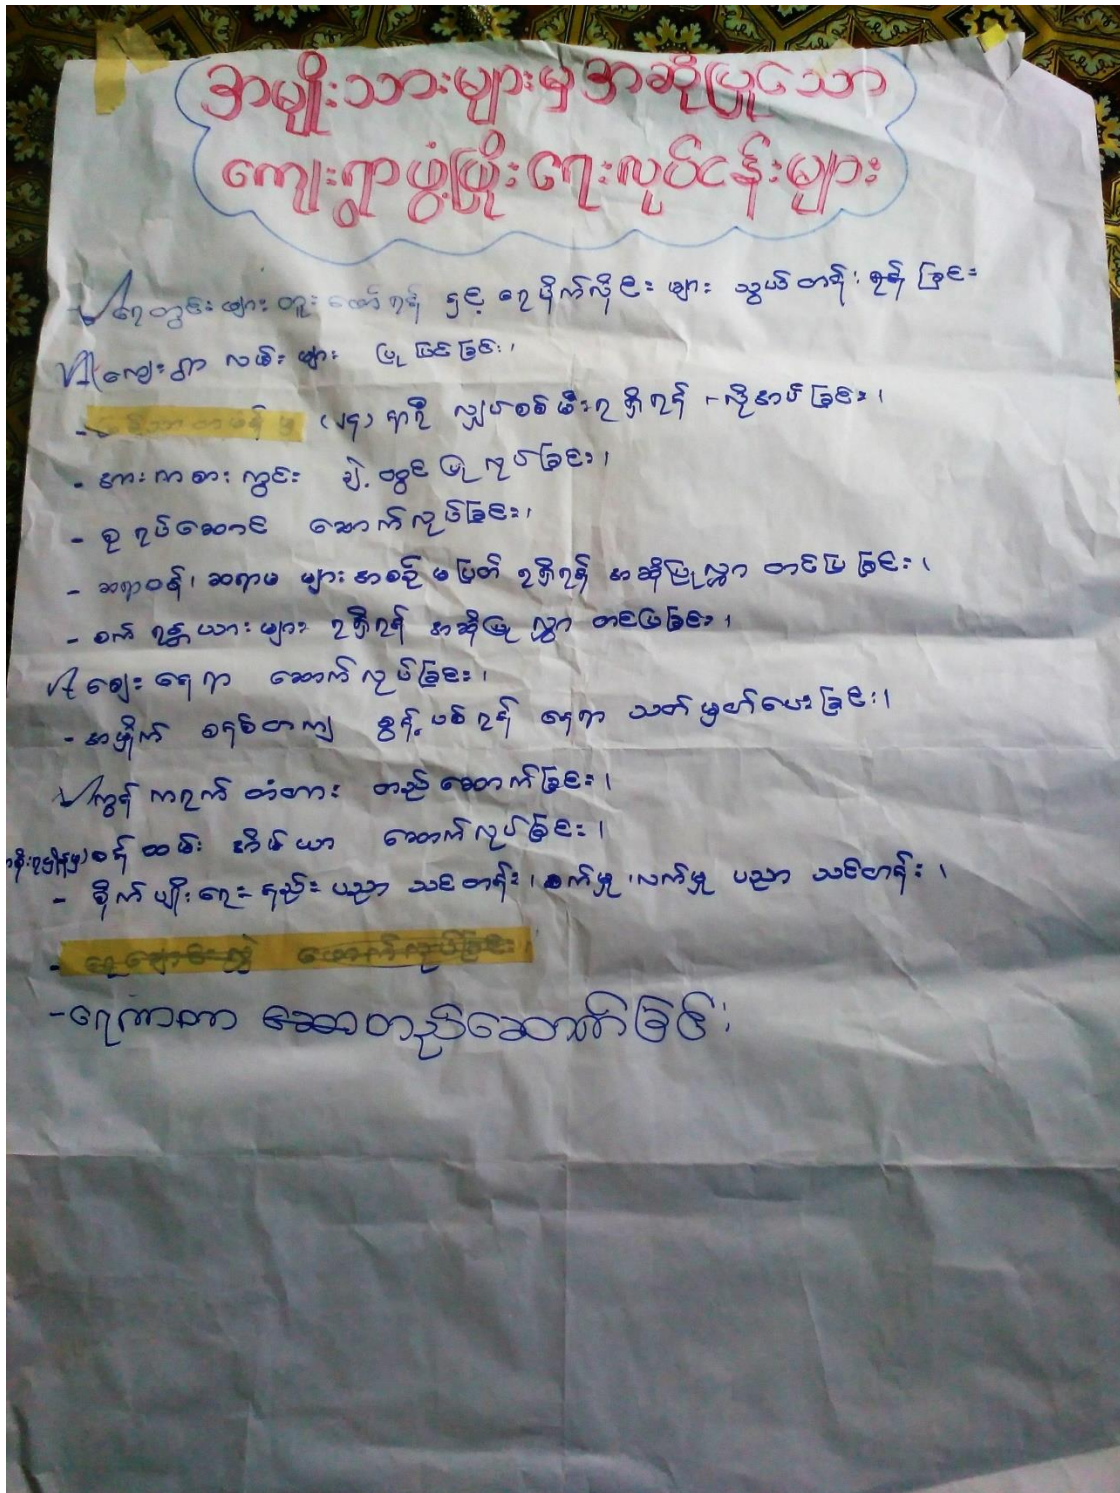 အမျိုးသားများမှအဆိုပြုသော
ကျေးရွာဖွံ့ဖြိုးရေးလုပ်ငန်းများ
ရေတွင်းများတူးဖော်ရန် ၄င့် ရေပိုက်လိုင်း များ သွယ်တန်း ရန် ခြင်း
ကျေးရွာ လမ်း များ ပြု ပြင်ခြင်း၊
(၂၄) နာရီ လျှပ်စစ် မီးရရှိရန် - လိုအပ်ခြင်း၊
- အားကစား ကွင်း ချဲ့ ထွင် ပြု လုပ်ခြင်း၊
- စု ရပ်ဆောင် ဆောက်လုပ်ခြင်း၊
- ဆရာဝန်၊ ဆရာမ များ အစဉ် မပြတ် ရရှိရန် အဆိုပြုလွှာ တင်ပြ ခြင်း၊
- စက် ယန္တယားများ ရရှိရန် အဆိုပြု လွှာ တင်ပြခြင်း၊
ဈေး နေရာ ဆောက်လုပ်ခြင်း၊
- အမှိုက် စနစ်တကျ စွန့်ပစ်ရန် နေရာ သတ်မှတ်ပေးခြင်း၊
ကွန် ကရက် တံတား တည် ဆောက်ခြင်း၊
ဝန် ထမ်း အိမ်ယာ ဆောက်လုပ်ခြင်း၊
- စိုက်ပျိုးရေး နည်း ပညာ သင်တန်း၊ စက်မှု ၊လက်မှု ပညာ သင်တန်း ၊
ဆောက်လုပ်ခြင်း၊
- ရေကာတာ ဆောတည်ဆောက်ခြင်း